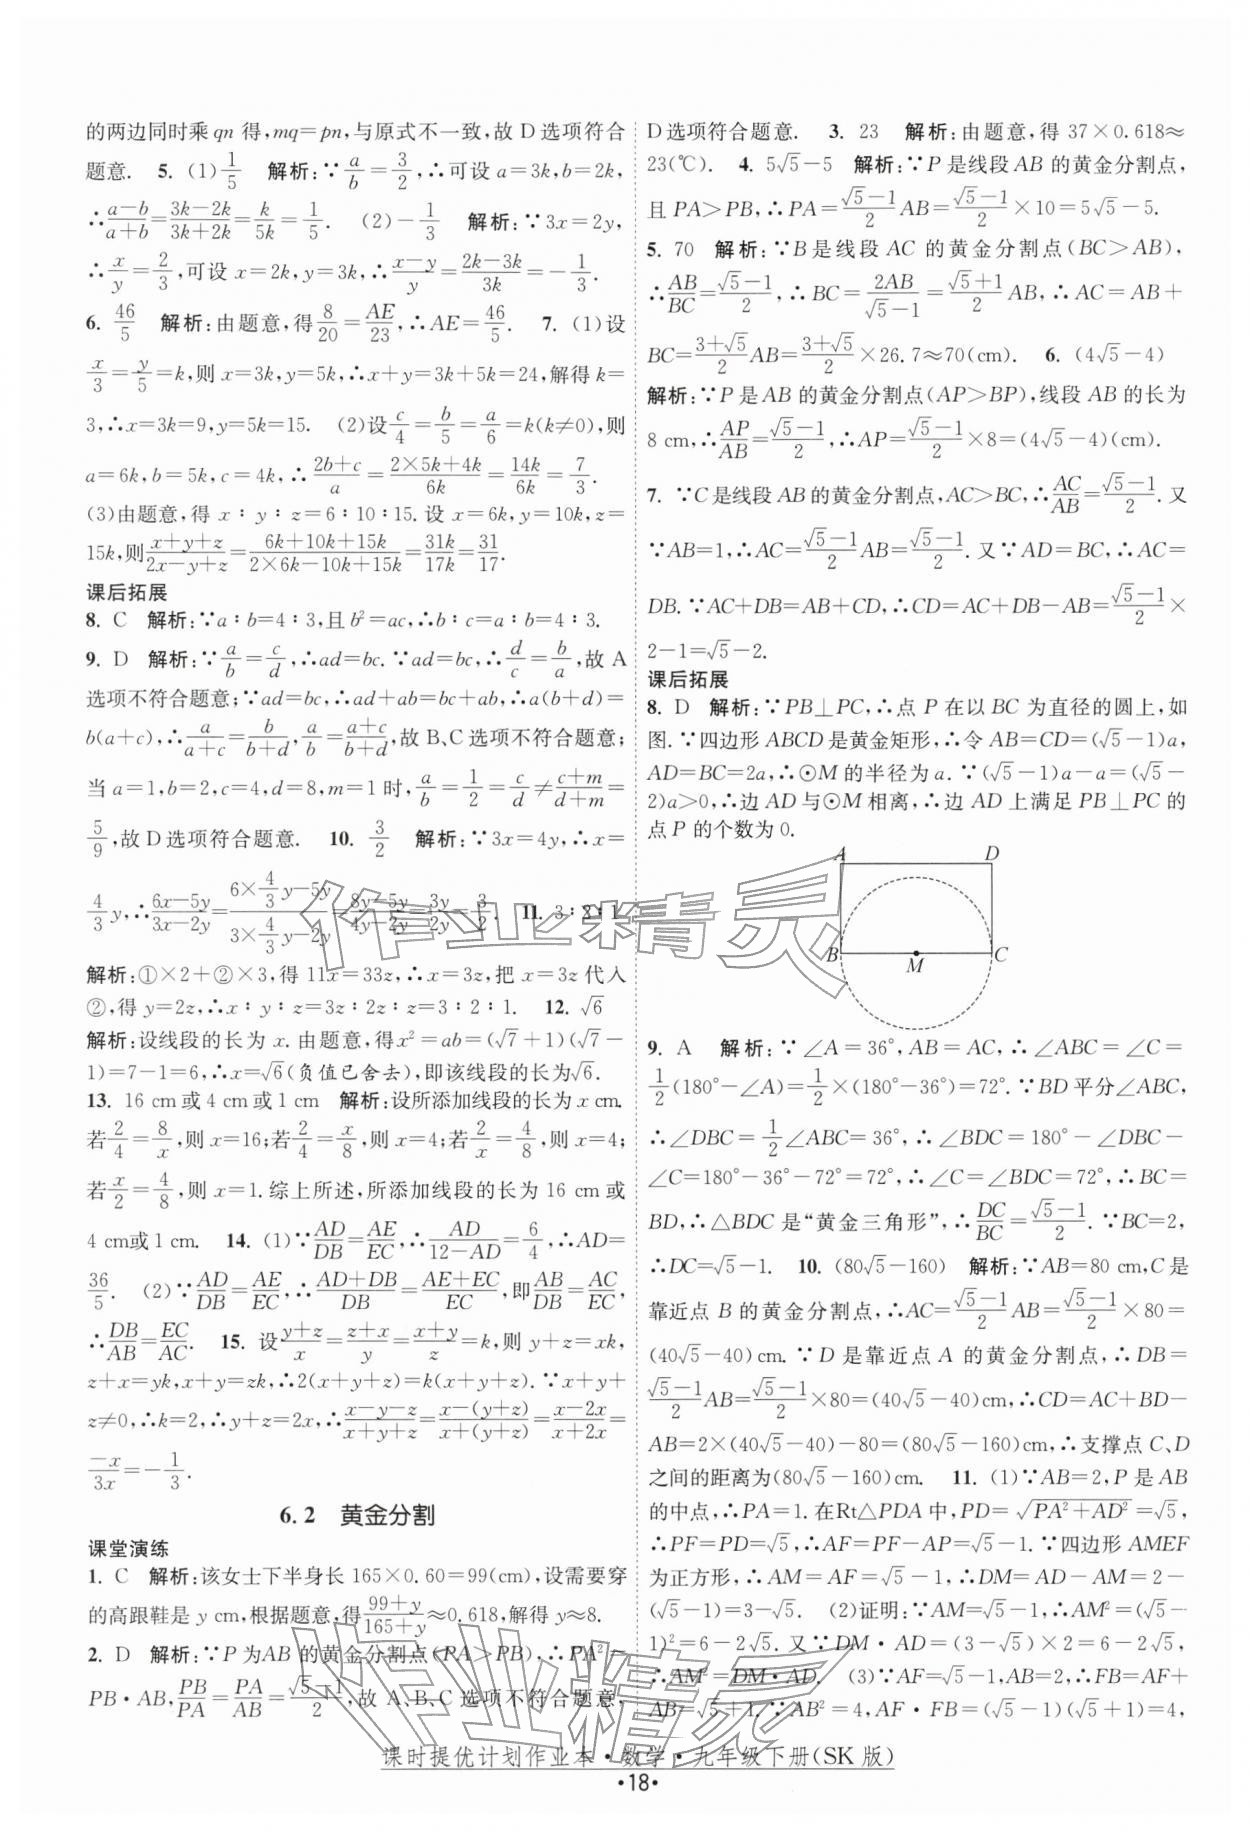 的两边同时乘qn得,mq=pn,与原式不一致,故D选项符合
题意. 5. (1) 1/5 解析:∵a/b=3/2,∴可设a=3k,b=2k,
∴(a-b)/(a+b)=(3k-2k)/(3k+2k)=k/5k=1/5. (2)-1/3 解析:∵3x=2y,
∴x/y=2/3,可设x=2k,y=3k,∴(x-y)/y=(2k-3k)/3k=-1/3.
6. 46/5 解析:由题意,得8/20=AE/23,∴AE=46/5. 7. (1)设
x/3=y/5=k,则x=3k,y=5k,∴x+y=3k+5k=24,解得k=
3,∴x=3k=9,y=5k=15. (2)设c/4=b/5=a/6=k(k≠0),则
a=6k,b=5k,c=4k,∴(2b+c)/a=(2×5k+4k)/6k=14k/6k=7/3.
(3)由题意,得x∶y∶z=6∶10∶15.设x=6k,y=10k,z=
15k,则(x+y+z)/(2x-y+z)=(6k+10k+15k)/(2×6k-10k+15k)=31k/17k=31/17.
课后拓展
8. C 解析:∵a∶b=4∶3,且b²=ac,∴b∶c=a∶b=4∶3.
9. D 解析:∵a/b=c/d,∴ad=bc.∵ad=bc,∴d/c=b/a,故A
选项不符合题意;∵ad=bc,∴ad+ab=bc+ab,∴a(b+d)=
b(a+c),∴a/(a+c)=b/(b+d),a/b=(a+c)/(b+d),故B、C选项不符合题意;
当a=1,b=2,c=4,d=8,m=1时,a/b=1/2=c/d≠(c+m)/(d+m)=
5/9,故D选项符合题意. 10. 3/2 解析:∵3x=4y,∴x=
4/3 y,∴(6x-5y)/(3x-2y)=(6×4/3 y-5y)/(3×4/3 y-2y)=(8y-5y)/(4y-2y)=3y/2y=3/2. 11. 3∶2∶1
解析:①×2+②×3,得11x=33z,∴x=3z,把x=3z代入
②,得y=2z,∴x∶y∶z=3z∶2z∶z=3∶2∶1. 12. √6
解析:设线段的长为x.由题意,得x²=ab=(√7+1)(√7-
1)=7-1=6,∴x=√6(负值已舍去),即该线段的长为√6.
13. 16 cm或4 cm或1 cm 解析:设所添加线段的长为x cm.
若2/4=8/x,则x=16;若2/4=x/8,则x=4;若2/x=4/8,则x=4;
若x/2=4/8,则x=1.综上所述,所添加线段的长为16 cm或
4 cm或1 cm. 14. (1)∵AD/DB=AE/EC,∴AD/(12-AD)=6/4,∴AD=
36/5. (2)∵AD/DB=AE/EC,∴(AD+DB)/DB=(AE+EC)/EC,即AB/DB=AC/EC,
∴DB/AB=EC/AC. 15. 设(y+z)/x=(z+x)/y=(x+y)/z=k,则y+z=xk,
z+x=yk,x+y=zk,∴2(x+y+z)=k(x+y+z).∵x+y+
z≠0,∴k=2,∴y+z=2x,∴(x-y-z)/(x+y+z)=(x-(y+z))/(x+(y+z))=(x-2x)/(x+2x)=
-x/3x=-1/3.
6.2 黄金分割
课堂演练
1. C 解析:该女士下半身长165×0.60=99(cm),设需要穿
的高跟鞋是y cm,根据题意,得(99+y)/(165+y)≈0.618,解得y≈8.
2. D 解析:∵P为AB的黄金分割点(PA>PB),∴PA²=
PB·AB,PB/PA=PA/AB=(√5-1)/2,故A、B、C选项不符合题意,
D选项符合题意. 3. 23 解析:由题意,得37×0.618≈
23(℃). 4. 5√5-5 解析:∵P是线段AB的黄金分割点,
且PA>PB,∴PA=(√5-1)/2 AB=(√5-1)/2×10=5√5-5.
5. 70 解析:∵B是线段AC的黄金分割点(BC>AB),
∴AB/BC=(√5-1)/2,∴BC=2AB/(√5-1)=(√5+1)/2 AB,∴AC=AB+
BC=(3+√5)/2 AB=(3+√5)/2×26.7≈70(cm). 6. (4√5-4)
解析:∵P是AB的黄金分割点(AP>BP),线段AB的长为
8 cm,∴AP/AB=(√5-1)/2,∴AP=(√5-1)/2×8=(4√5-4)(cm).
7. ∵C是线段AB的黄金分割点,AC>BC,∴AC/AB=(√5-1)/2.又
∵AB=1,∴AC=(√5-1)/2 AB=(√5-1)/2.又∵AD=BC,∴AC=
DB.∵AC+DB=AB+CD,∴CD=AC+DB-AB=(√5-1)/2×
2-1=√5-2.
课后拓展
8. D 解析:∵PB⊥PC,∴点P在以BC为直径的圆上,如
图.∵四边形ABCD是黄金矩形,∴令AB=CD=(√5-1)a,
AD=BC=2a,∴⊙M的半径为a.∵(√5-1)a-a=(√5-
2)a>0,∴边AD与⊙M相离,∴边AD上满足PB⊥PC的
点P的个数为0.
A D
B M C
9. A 解析:∵∠A=36°,AB=AC,∴∠ABC=∠C=
1/2(180°-∠A)=1/2×(180°-36°)=72°.∵BD平分∠ABC,
∴∠DBC=1/2∠ABC=36°,∴∠BDC=180°-∠DBC-
∠C=180°-36°-72°=72°,∴∠C=∠BDC=72°,∴BC=
BD,∴△BDC是“黄金三角形”,∴DC/BC=(√5-1)/2.∵BC=2,
∴DC=√5-1. 10. (80√5-160) 解析:∵AB=80 cm,C是
靠近点B的黄金分割点,∴AC=(√5-1)/2 AB=(√5-1)/2×80=
(40√5-40)cm.∵D是靠近点A的黄金分割点,∴DB=
(√5-1)/2 AB=(√5-1)/2×80=(40√5-40)cm,∴CD=AC+BD-
AB=2×(40√5-40)-80=(80√5-160)cm,∴支撑点C、D
之间的距离为(80√5-160)cm. 11. (1)∵AB=2,P是AB
的中点,∴PA=1.在Rt△PDA中,PD=√(PA²+AD²)=√5,
∴PF=PD=√5,∴AF=PF-AP=√5-1.∵四边形AMEF
为正方形,∴AM=AF=√5-1,∴DM=AD-AM=2-
(√5-1)=3-√5. (2)证明:∵AM=√5-1,∴AM²=(√5-
1)²=6-2√5.又∵DM·AD=(3-√5)×2=6-2√5,
∴AM²=DM·AD. (3)∵AF=√5-1,AB=2,∴FB=AF+
AB=√5+1.∵AB²=4,AF·FB=(√5-1)(√5+1)=4,
课时提优计划作业本·数学·九年级下册(SK版)
·18·
作业精灵
作业精灵